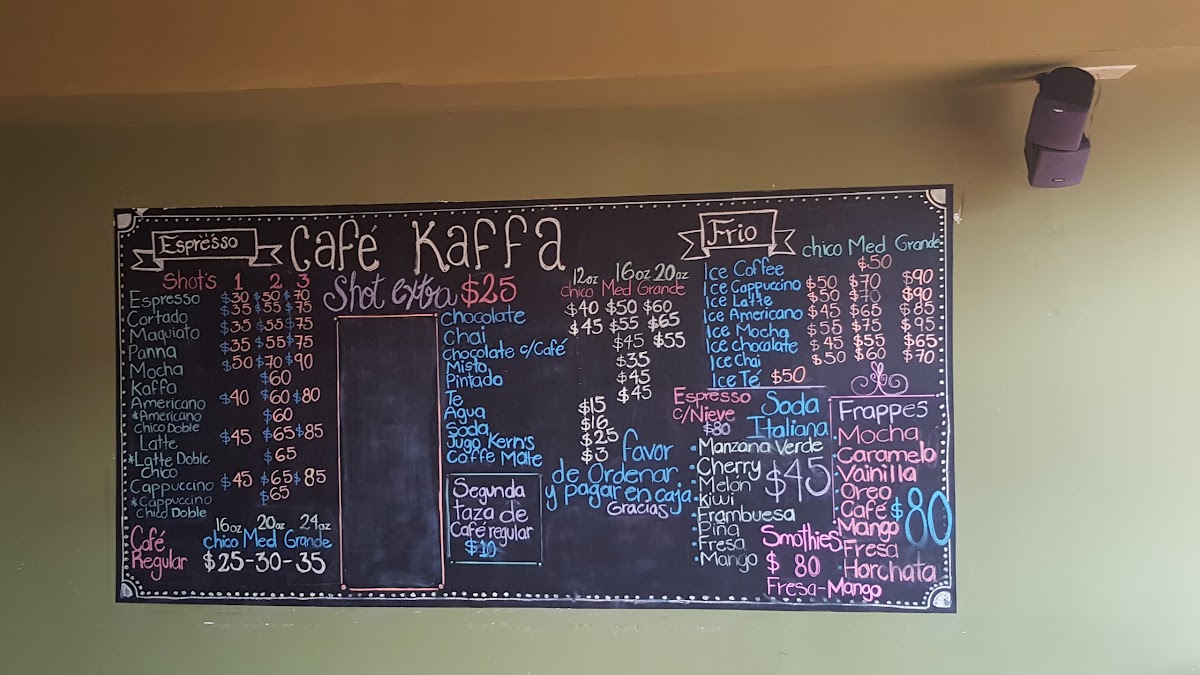 Café Kaffa
Espresso
Shot's 1 2 3
Espresso $30 $50 $70
Cortado $35 $55 $75
Maquiato $35 $55 $75
Panna $35 $55 $75
Mocha $50 $70 $90
Kaffa $60
Americano $40 $60 $80
*Americano
Chico Doble $60
Latte $45 $65 $85
*Latte Doble
Chico $65
Cappuccino $45 $65 $85
*Cappuccino
Chico Doble $65
16oz 20oz 24oz
Café chico Med Grande
Regular $25-30-35
Shot extra $25
12oz 16oz 20oz
chico Med Grande
Chocolate $40 $50 $60
Chai $45 $55 $65
Chocolate c/Café $45 $55
Misto $35
Pintado $45
Te $45
Agua $15
Soda $16
Jugo Kern's $25
Coffe Mate $3
Segunda
taza de
Café regular
$10
favor
de Ordenar
y pagar en caja
Gracias
Frio
chico Med Grande
Ice Coffee $50
Ice Cappuccino $50 $70 $90
Ice Latte $50 $70 $90
Ice Americano $45 $65 $85
Ice Mocha $55 $75 $95
Ice chocolate $45 $55 $65
Ice Chai $50 $60 $70
Ice Té $50
Espresso
c/Nieve
$80
Soda
Italiana
• Manzana Verde
• Cherry
• Melon
• Kiwi
• Frambuesa
• Piña
• Fresa
• Mango
$45
Smothies
$ 80
Fresa-Mango
Frappes
Mocha
Caramelo
Vainilla
Oreo
Café
Mango
Fresa
Horchata
$80